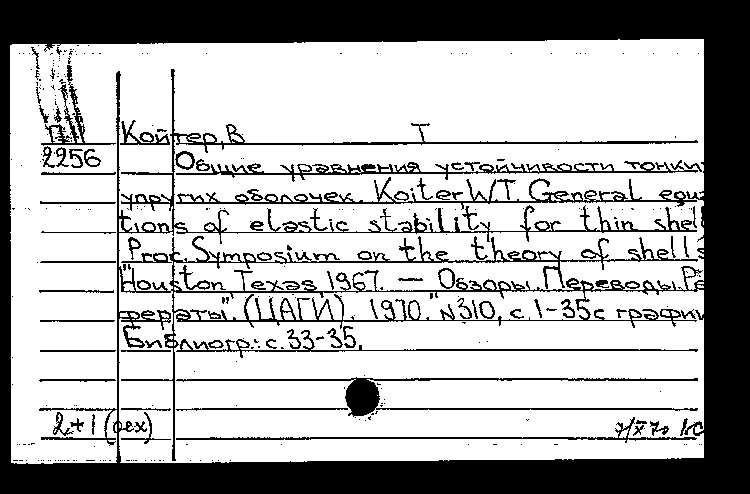 Койтер, В Т
2256 Общие уравнения устойчивости тонки
упругих оболочек. Koiter W T. General equa
tions of elastic stability for thin shel
Proc. Symposium on the theory of shells
"Houston Texas 1967. — Обзоры. Переводы. Ре
фераты". (ЦАГИ). 1970. "N310, с. 1-35 с графи
Библиогр: с. 33-35.
2+1